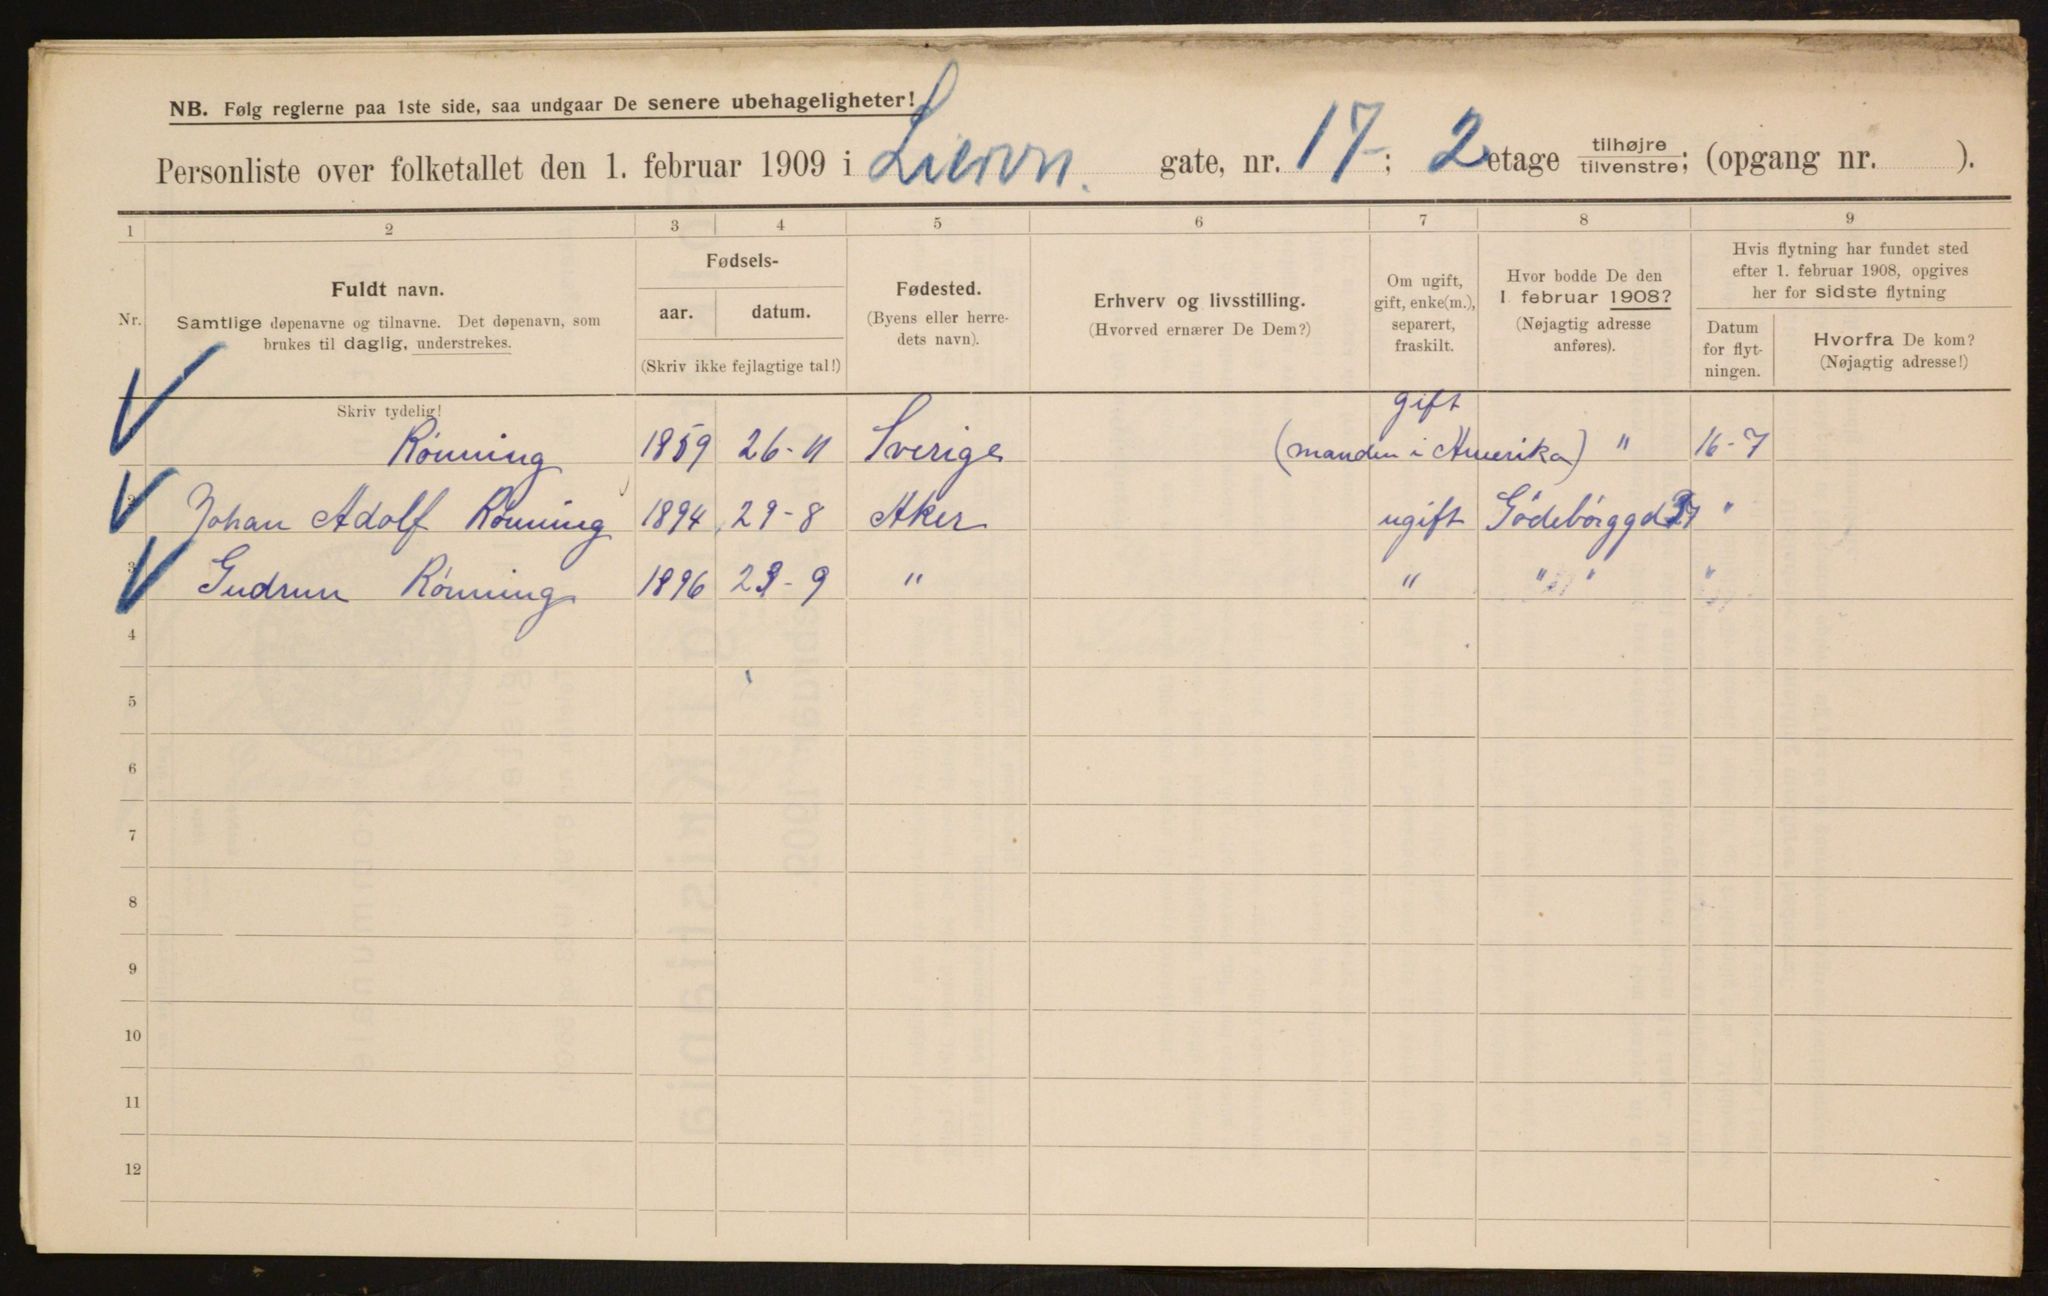 NB. Følg reglerne paa 1ste side, saa undgaar De senere ubehageligheter!
Personliste over folketallet den 1. februar 1909 i gate, nr. 17; 2 etage tilhøjre/tilvenstre; (opgang nr. ).
1 2 3 4 5 6 7 8 9
Nr.
Fuldt navn.
Samtlige døpenavne og tilnavne. Det døpenavn, som
brukes til daglig, understrekes.
Fødsels-
aar. datum.
(Skriv ikke fejlagtige tal!)
Fødested.
(Byens eller herre-
dets navn).
Erhverv og livsstilling.
(Hvorved ernærer De Dem?)
Om ugift,
gift, enke(m.),
separert,
fraskilt.
Hvor bodde De den
1. februar 1908?
(Nøjagtig adresse
anføres).
Hvis flytning har fundet sted
efter 1. februar 1908, opgives
her for sidste flytning
Datum
for flyt-
ningen.
Hvorfra De kom?
(Nøjagtig adresse!)
Skriv tydelig!
gift
Rönning 1859 26-11 Sverige (manden i Amerika) " 16-7
2 Johan Adolf Rönning 1894 29-8 Aker ugift "
3 Gudrun Rönning 1896 23-9 " " " "
4
5
6
7
8
9
10
11
12